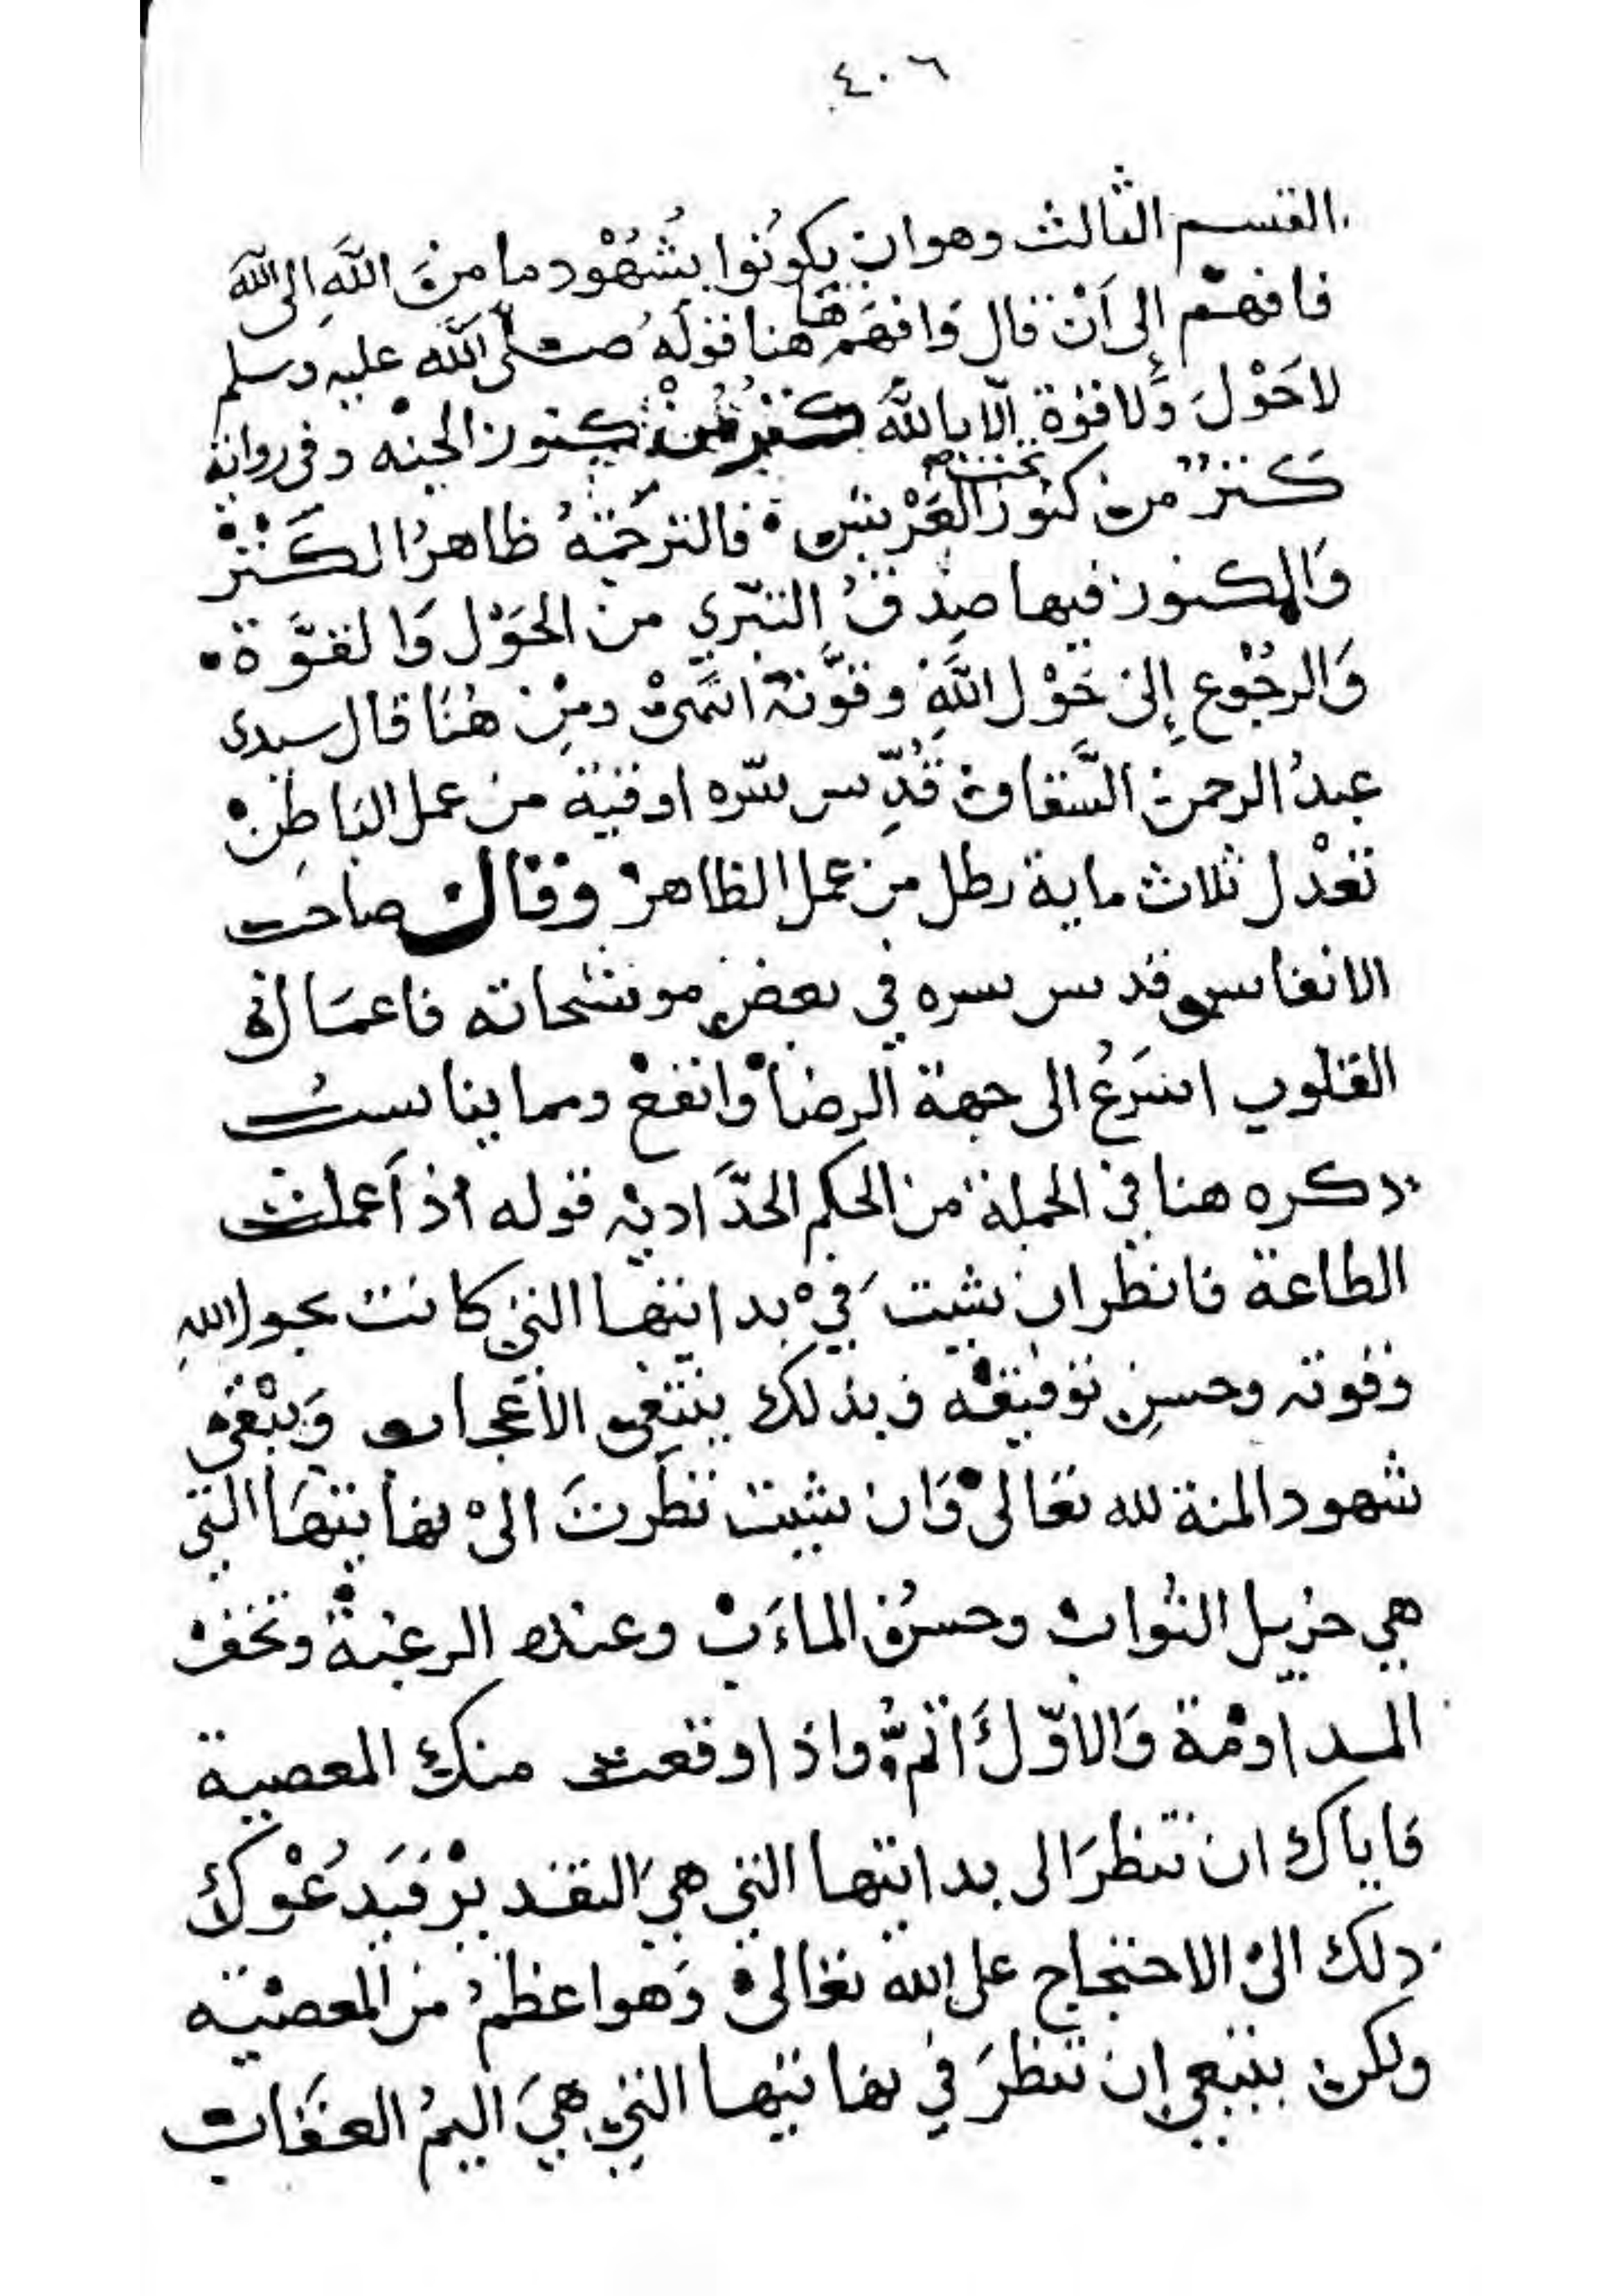 ٤٠٦
القسم الثالث وهو ان يكونوا بشُهُود ما مِنَ اللَّهِ الى اللَّه
فافهم إلى أَنْ قال وَافهَم هَاهنا قولَهُ صلى اللَّه عليه وسلم
لاحَوْلَ وَلا قوة إلّا باللَّه كنزٌ مِنْ كنوز الجنه وفى رواية
كَنزٌ من كنوز تحت العَرْش فالترجَمَةُ ظاهرُ الكَنْز
وَالمكنوز فيها صِدْقُ التبَرّي من الحَوْل وَالقوَّة
وَالرجُوع إلىٰ حَوْل اللَّهِ وقوَّته انتهىٰ ومِنْ هُنَا قال سيدى
عبدُ الرحمن السَّقاف قُدِّس سّره اوقية من عمل البَاطِنْ
تعْدل ثلاث ماية رطل من عمل الظاهر وقال صاحب
الانفاس قدس سره في بعض موشحاته فاعمَال
القلوب اسْرَعُ الى جهة الرضا وَانفع ومما يناسبُ
ذكره هنا في الجملة من الحكم الحدَّاديه قوله اذ اَعملت
الطاعة فانظر ان شيت فيْ بدايتها التي كانت بحول اللهِ
وقوته وحسنِ توفيقه وبذلك ينتفى الاعجاب وَيبْقى
شهود المنة لله تعَالىْ وَان شيت نظَرتَ الىْ نهايتهَا التي
هي جزيل الثواب وحسنُ الماءَب وعنده الرغبة وتخف
المداومة وَالاوّلُ اَتمُّ واذا وقعت منك المعصية
فاياك ان تنظرَ الى بدايتها التي هيَ التقدير فيَدعُوْك
ذلك الىْ الاحتجاج على الله تعَالىْ وَهو اعظمُ من المعصْيه
ولكن ينبغي ان تنظرَ في نهايتها التي هيَ اليمُ العقَاب